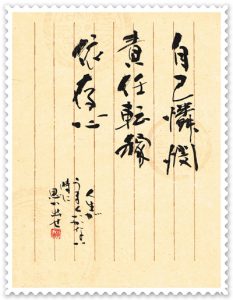 自己憐憫
責任転嫁
依存心
人生が
うまくいかない
時に
思い出せ